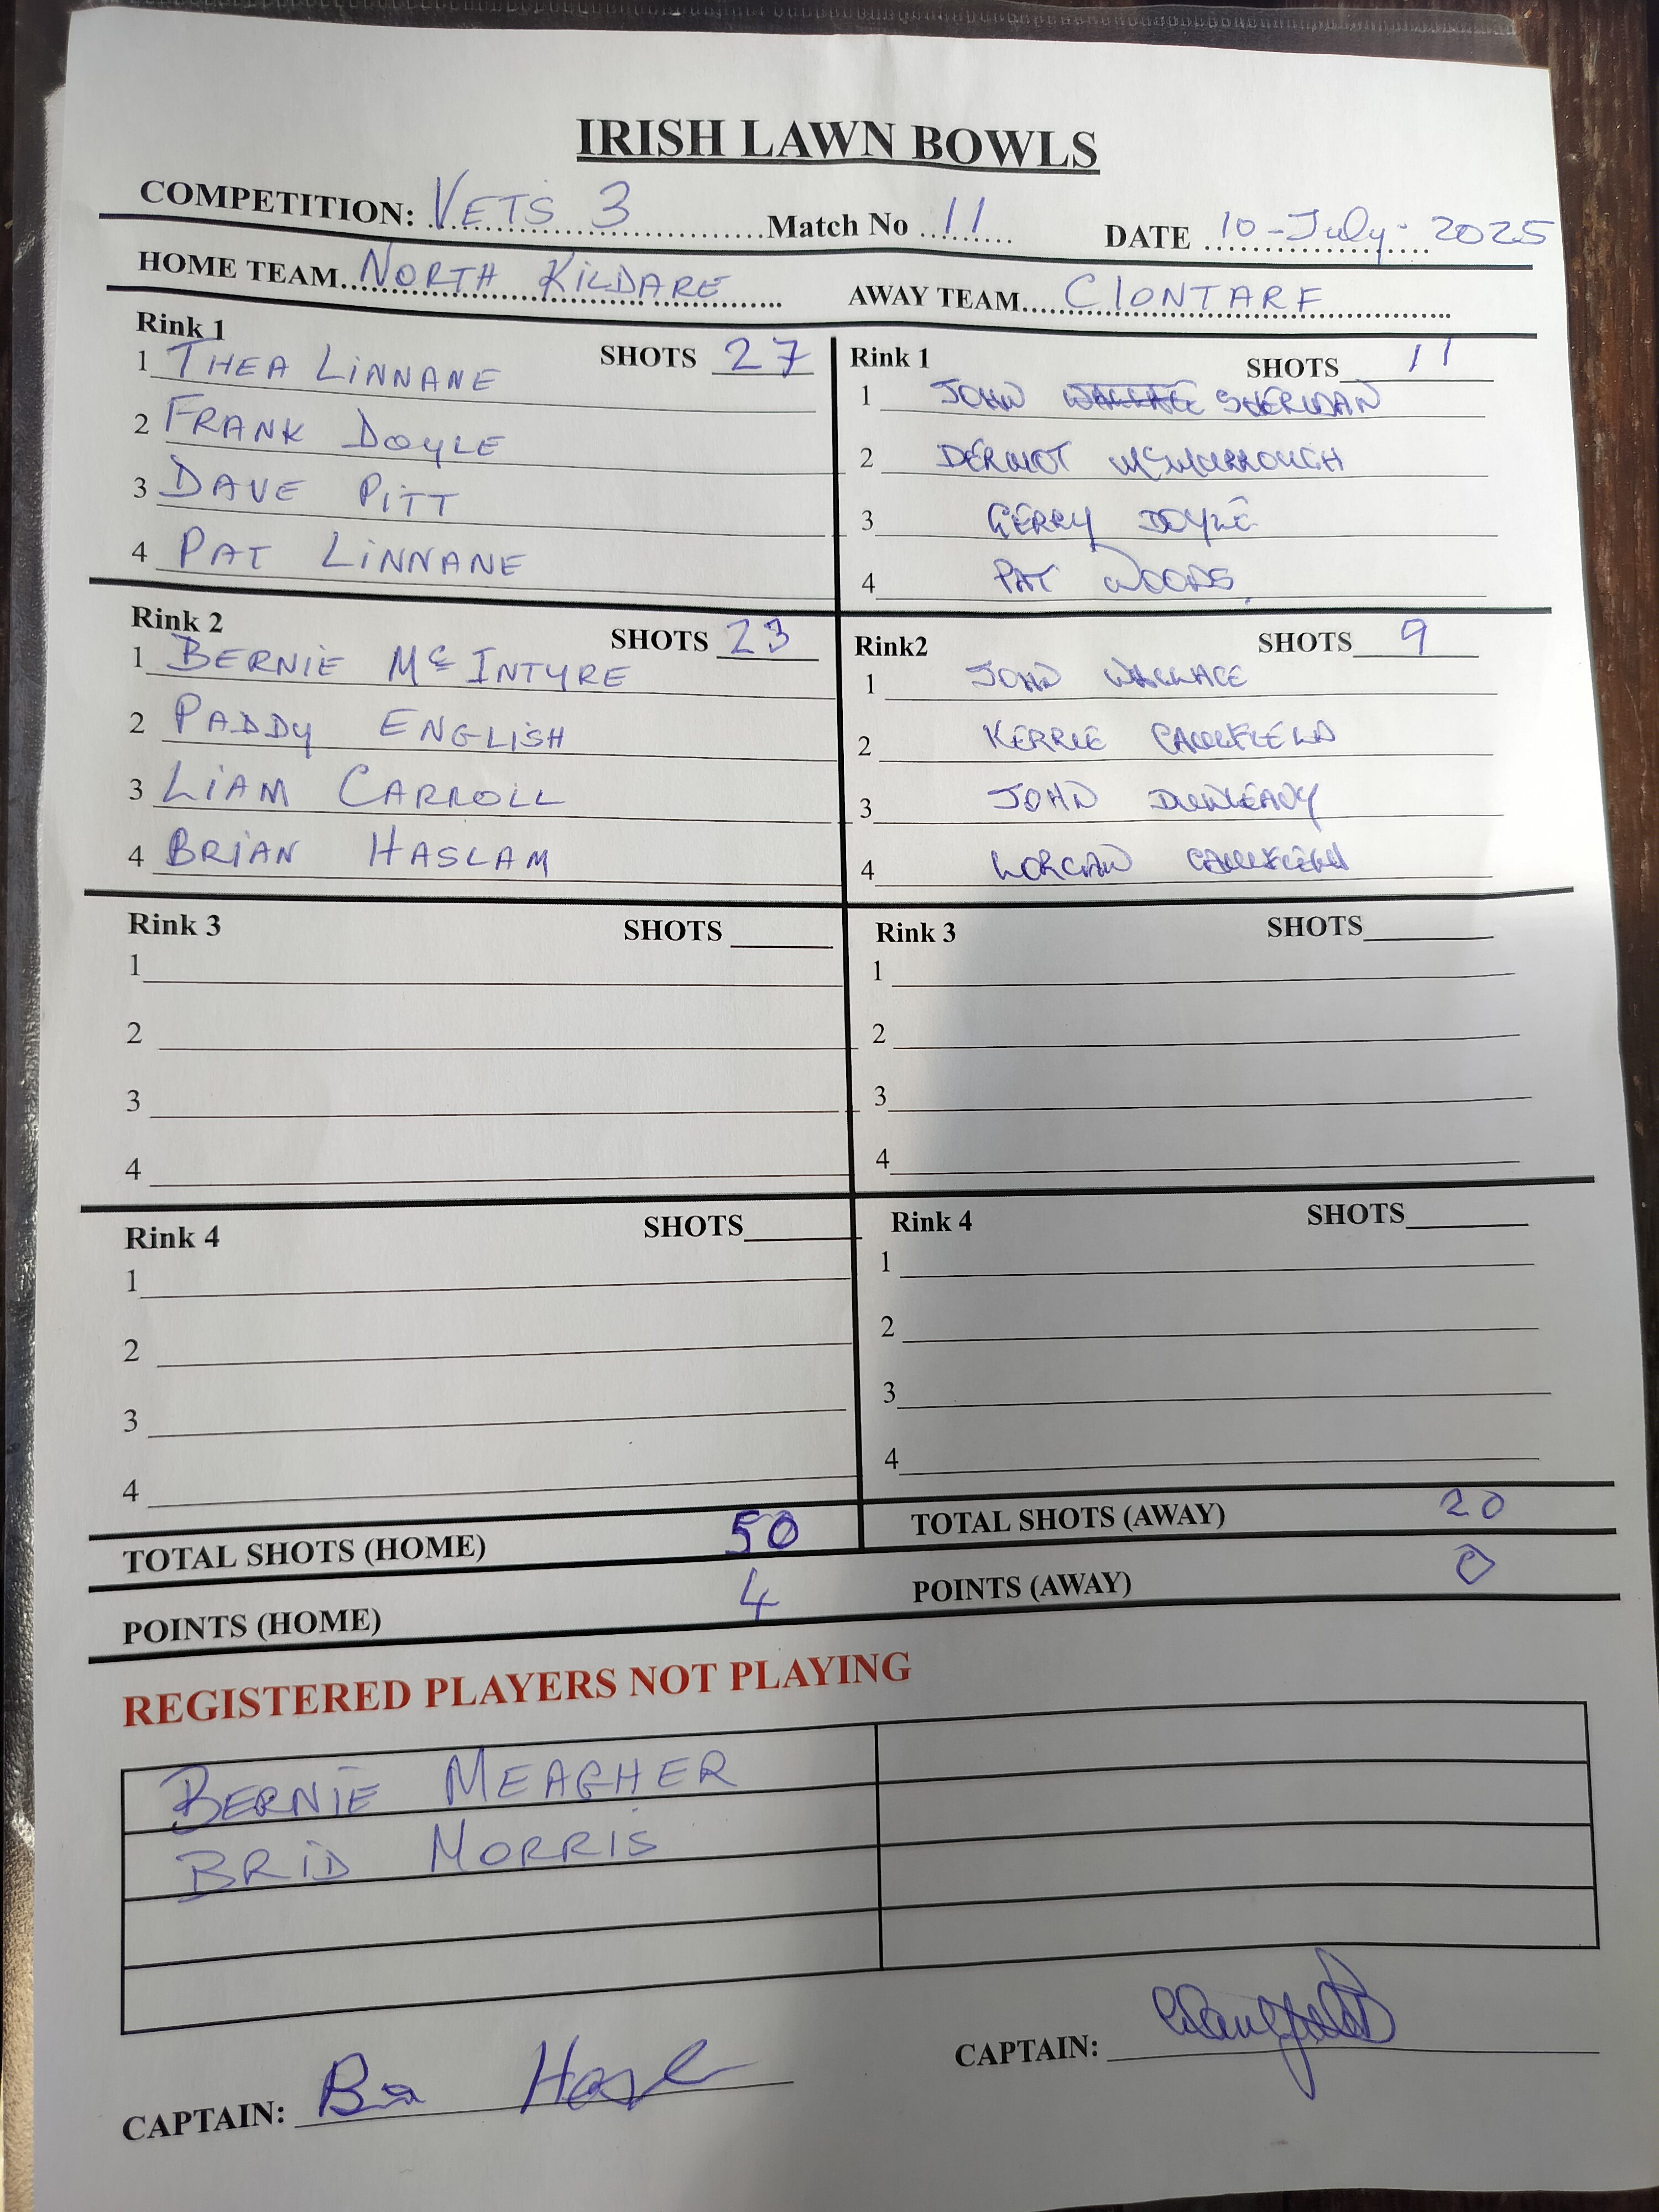 IRISH LAWN BOWLS
COMPETITION: VETS 3 Match No 11 DATE 10-July-2025
HOME TEAM NORTH KILDARE AWAY TEAM ClONTARF
Rink 1 SHOTS 27
1 THEA LINNANE
2 FRANK DOYLE
3 DAVE PITT
4 PAT LINNANE
Rink 1 SHOTS 11
1 JOHN WALLACE SHERIDAN
2 DERMOT McMURROUGH
3 GERRY DOYLE
4 PAT WOODS
Rink 2 SHOTS 23
1 BERNIE Mc INTYRE
2 PADDY ENGLISH
3 LIAM CARROLL
4 BRIAN HASLAM
Rink2 SHOTS 9
1 JOHN WALLACE
2 KERRIE CAULFIELD
3 JOHN DUNLEAVY
4 LORCAN CAULFIELD
Rink 3 SHOTS
1
2
3
4
Rink 3 SHOTS
1
2
3
4
Rink 4 SHOTS
1
2
3
4
Rink 4 SHOTS
1
2
3
4
TOTAL SHOTS (HOME) 50 TOTAL SHOTS (AWAY) 20
POINTS (HOME) 4 POINTS (AWAY) 0
REGISTERED PLAYERS NOT PLAYING
BERNIE MEAGHER
BRID MORRIS
CAPTAIN:
CAPTAIN: